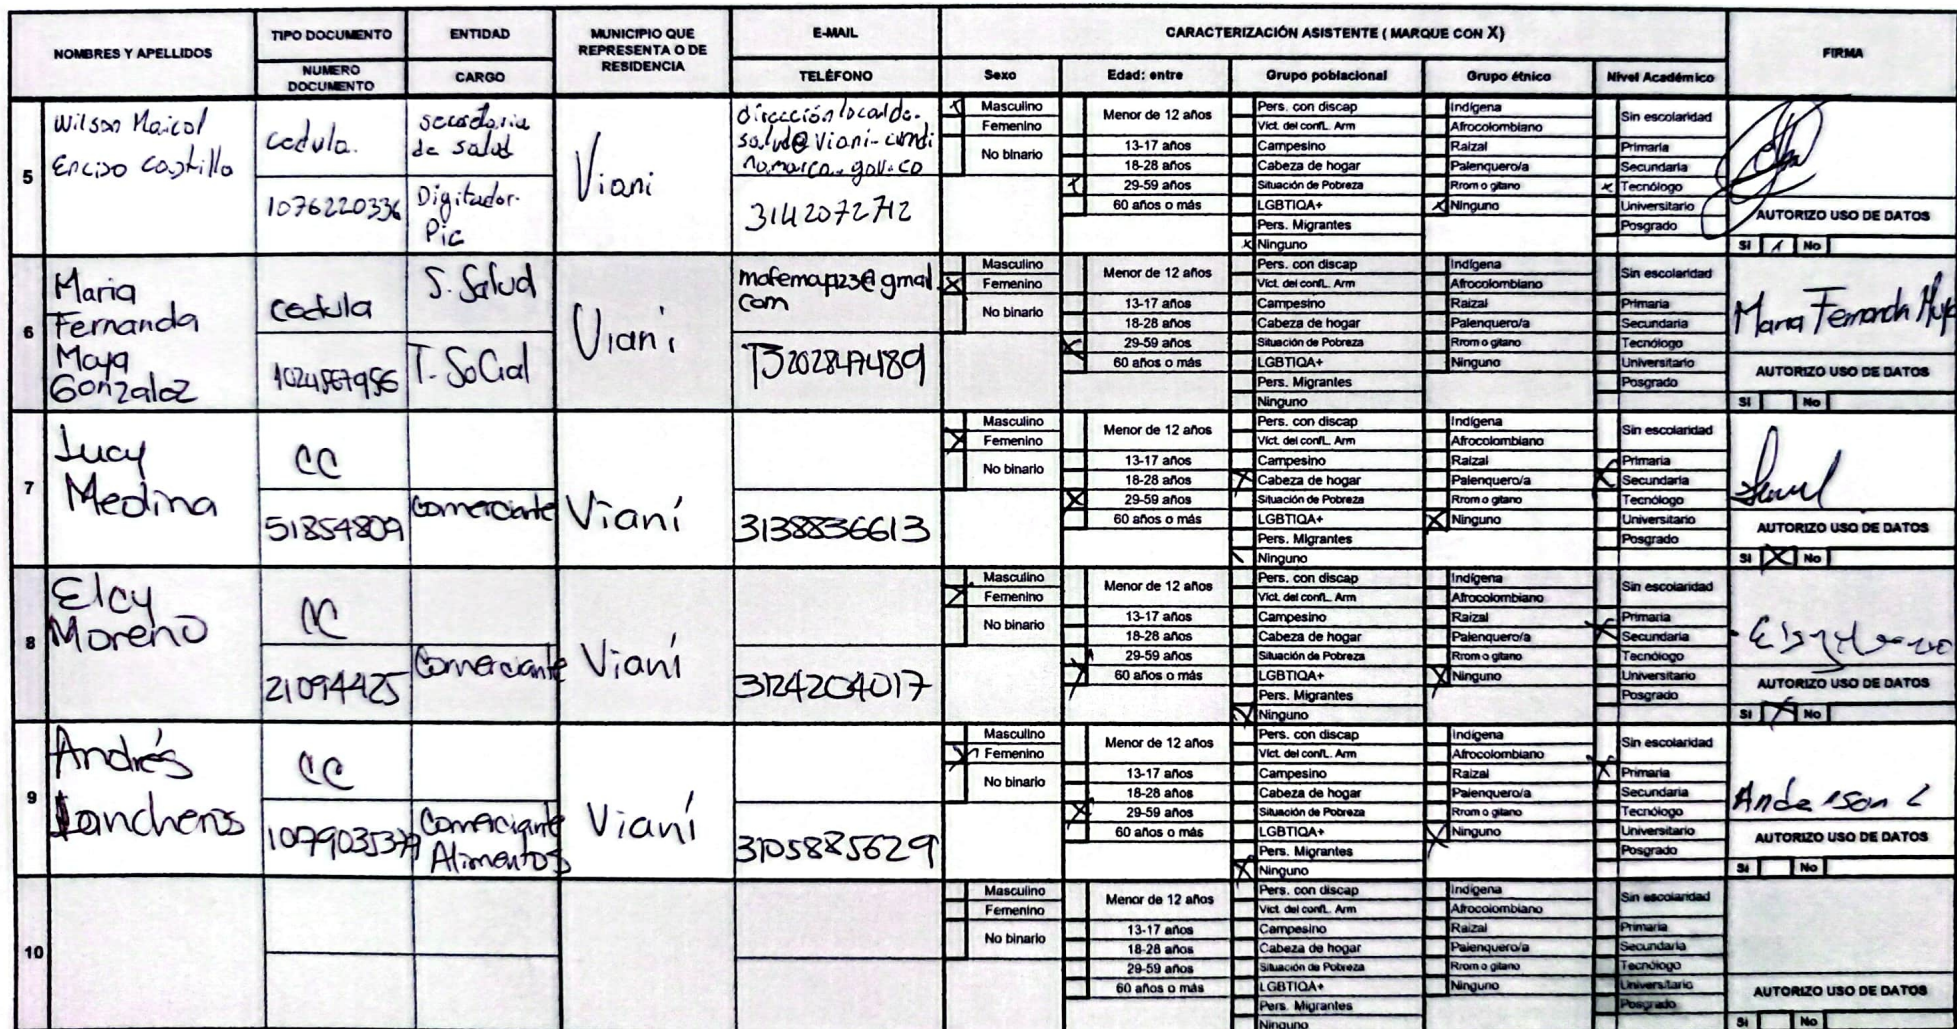 NOMBRES Y APELLIDOS
TIPO DOCUMENTO
NUMERO DOCUMENTO
ENTIDAD
CARGO
MUNICIPIO QUE REPRESENTA O DE RESIDENCIA
E-MAIL
TELÉFONO
CARACTERIZACIÓN ASISTENTE ( MARQUE CON X)
Sexo
Edad: entre
Grupo poblacional
Grupo étnico
Nivel Académico
FIRMA
5
Wilson Maicol
Enciso Castillo
cedula.
1076220336
secretaria
de salud
Digitador.
Pic
Viani
dirección local de.
salud@viani-cundi
namarca.gov.co
3142072712
X Masculino
Femenino
No binario
Menor de 12 años
13-17 años
18-28 años
X 29-59 años
60 años o más
Pers. con discap
Vict. del confl. Arm
Campesino
Cabeza de hogar
Situación de Pobreza
LGBTIQA+
Pers. Migrantes
X Ninguno
Indígena
Afrocolombiano
Raizal
Palenquero/a
Rrom o gitano
X Ninguno
Sin escolaridad
Primaria
Secundaria
X Tecnólogo
Universitario
Posgrado
AUTORIZO USO DE DATOS
SI X No
6
Maria
Fernanda
Maya
Gonzalez
cedula
S. Salud
T. Social
Viani
mafemap23@gmail.
com
Masculino
X Femenino
No binario
Menor de 12 años
13-17 años
18-28 años
X 29-59 años
60 años o más
Pers. con discap
Vict. del confl. Arm
Campesino
Cabeza de hogar
Situación de Pobreza
LGBTIQA+
Pers. Migrantes
Ninguno
Indígena
Afrocolombiano
Raizal
Palenquero/a
Rrom o gitano
Ninguno
Sin escolaridad
Primaria
Secundaria
Tecnólogo
Universitario
Posgrado
Maria Fernanda
AUTORIZO USO DE DATOS
SI No
7
Lucy
Medina
CC
51854809
Comerciante
Vianí
3138836613
Masculino
X Femenino
No binario
Menor de 12 años
13-17 años
18-28 años
X 29-59 años
60 años o más
Pers. con discap
Vict. del confl. Arm
Campesino
X Cabeza de hogar
Situación de Pobreza
LGBTIQA+
Pers. Migrantes
Ninguno
Indígena
Afrocolombiano
Raizal
Palenquero/a
Rrom o gitano
X Ninguno
Sin escolaridad
Primaria
X Secundaria
Tecnólogo
Universitario
Posgrado
AUTORIZO USO DE DATOS
SI X No
8
Elcy
Moreno
CC
21094425
Comerciante
Vianí
3124204017
Masculino
X Femenino
No binario
Menor de 12 años
13-17 años
18-28 años
29-59 años
X 60 años o más
Pers. con discap
Vict. del confl. Arm
Campesino
Cabeza de hogar
Situación de Pobreza
LGBTIQA+
Pers. Migrantes
X Ninguno
Indígena
Afrocolombiano
Raizal
Palenquero/a
Rrom o gitano
X Ninguno
Sin escolaridad
Primaria
X Secundaria
Tecnólogo
Universitario
Posgrado
AUTORIZO USO DE DATOS
SI X No
9
Andrés
Lancheros
CC
Comerciante
Alimentos
Vianí
3105885629
Masculino
X Femenino
No binario
Menor de 12 años
13-17 años
18-28 años
X 29-59 años
60 años o más
Pers. con discap
Vict. del confl. Arm
Campesino
Cabeza de hogar
Situación de Pobreza
LGBTIQA+
Pers. Migrantes
X Ninguno
Indígena
Afrocolombiano
Raizal
Palenquero/a
Rrom o gitano
X Ninguno
Sin escolaridad
X Primaria
Secundaria
Tecnólogo
Universitario
Posgrado
Anderson L
AUTORIZO USO DE DATOS
SI No
10
Masculino
Femenino
No binario
Menor de 12 años
13-17 años
18-28 años
29-59 años
60 años o más
Pers. con discap
Vict. del confl. Arm
Campesino
Cabeza de hogar
Situación de Pobreza
LGBTIQA+
Pers. Migrantes
Ninguno
Indígena
Afrocolombiano
Raizal
Palenquero/a
Rrom o gitano
Ninguno
Sin escolaridad
Primaria
Secundaria
Tecnólogo
Universitario
Posgrado
AUTORIZO USO DE DATOS
SI No